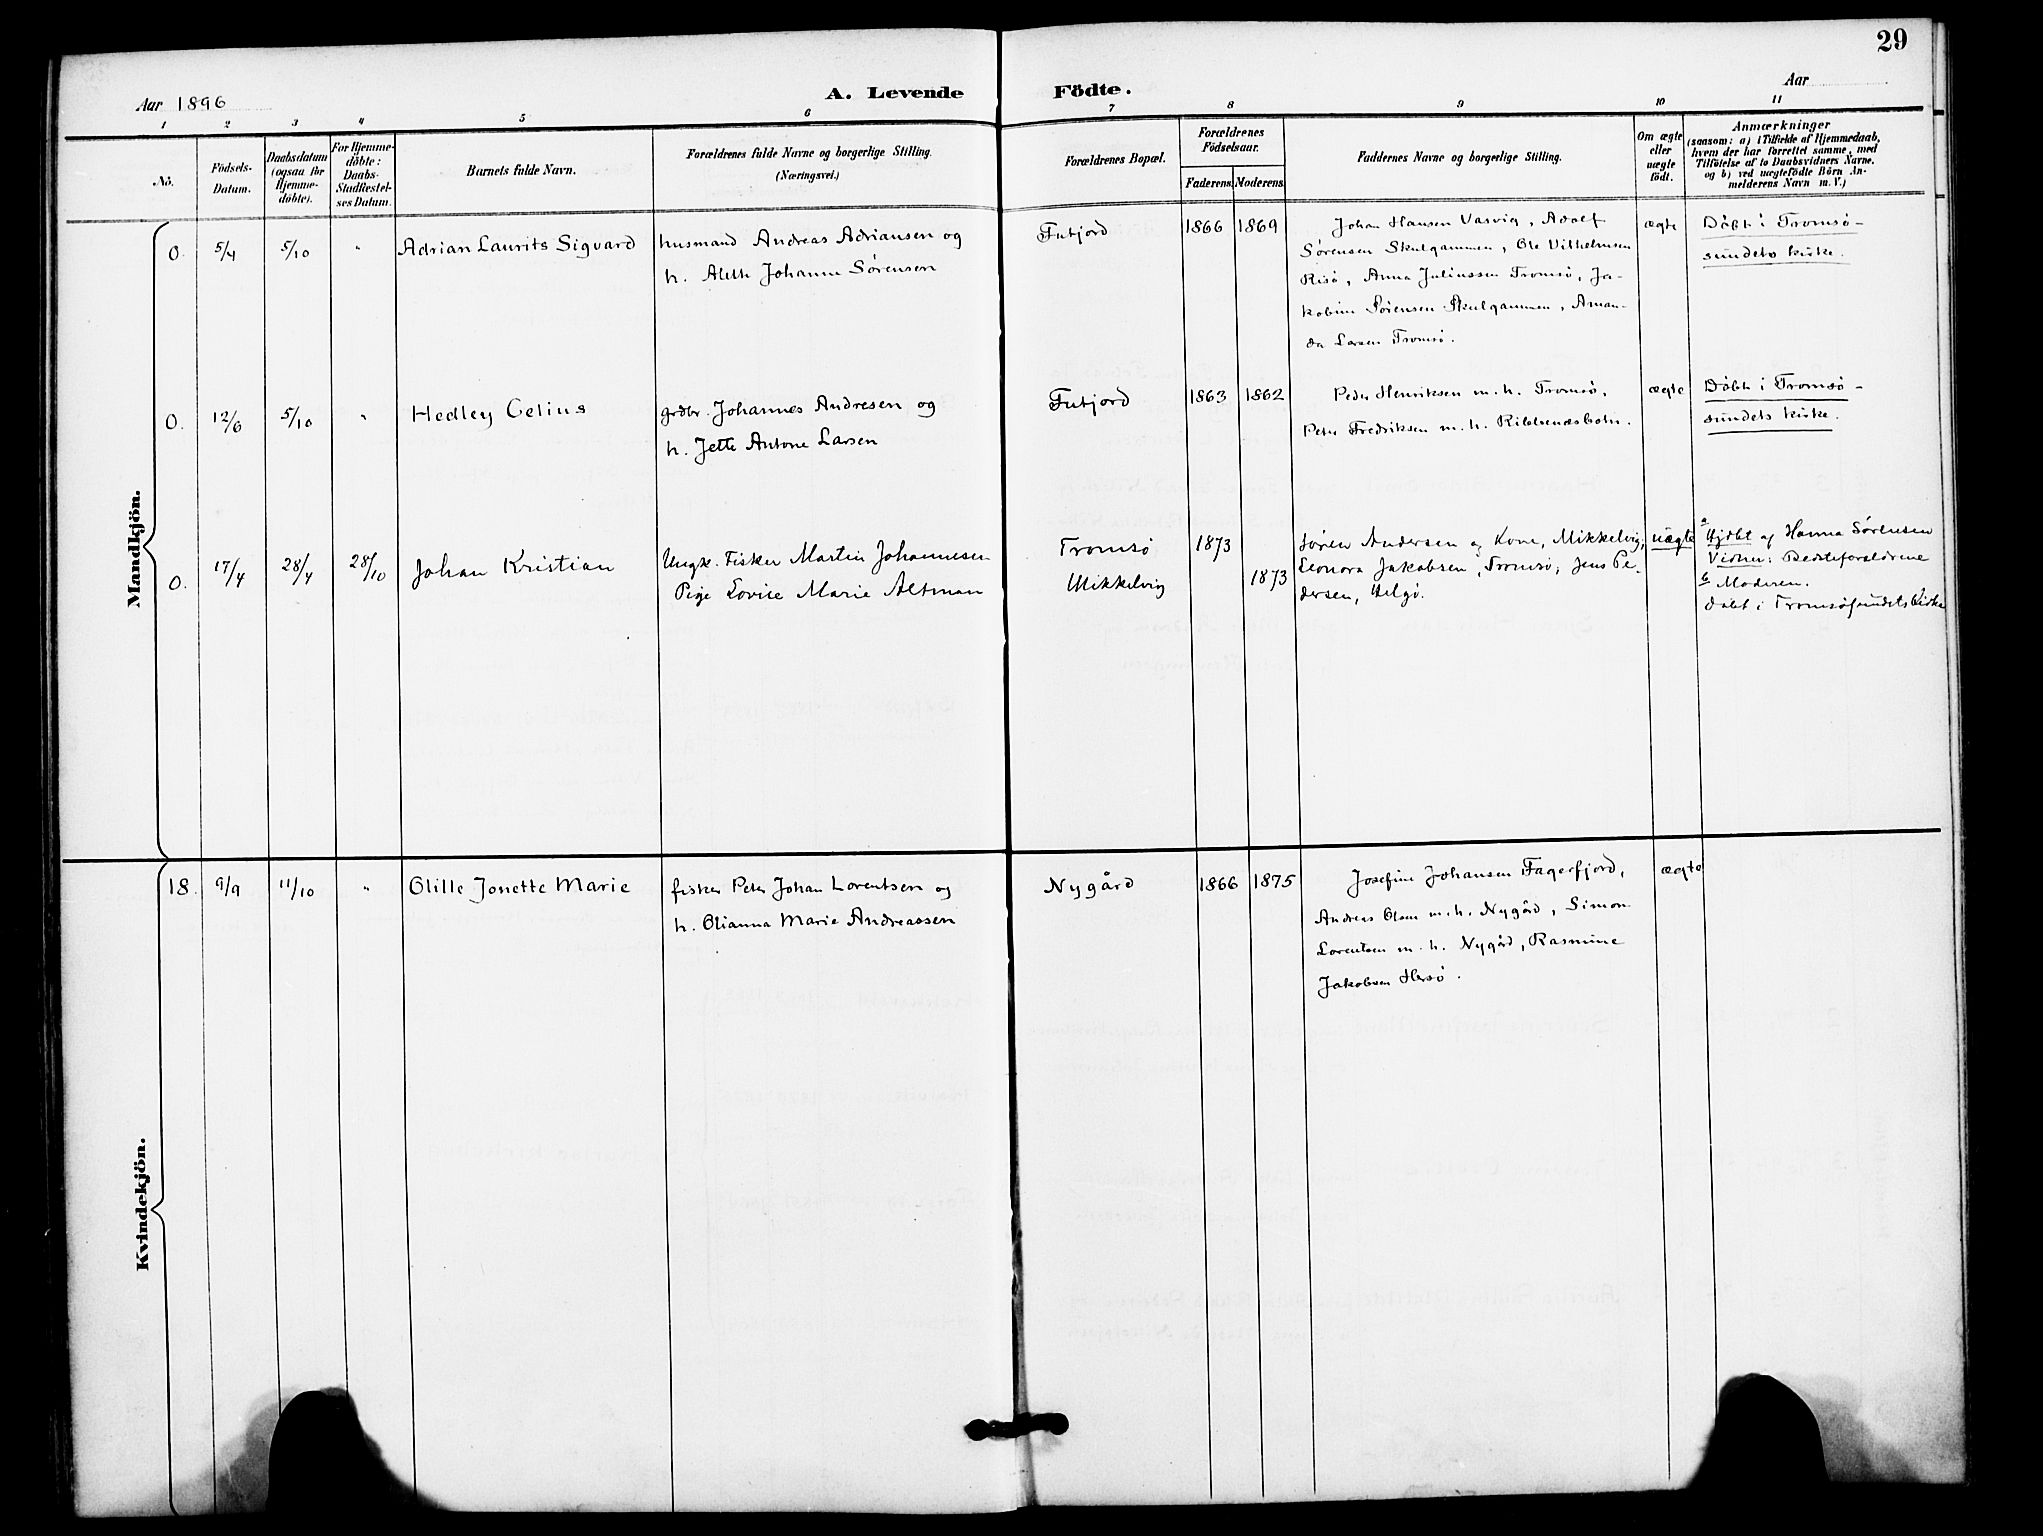 29
Aar 1896
A. Levende Födte.
Aar
1 2 3 4 5 6 7 8 9 10 11
No.
Födsels-
Datum.
Daabsdatum
(ogsaa for
Hjemme-
döbte).
For Hjemme-
döbte:
Daabs-
Stadfestel-
ses Datum.
Barnets fulde Navn.
Forældrenes fulde Navne og borgerlige Stilling.
(Næringsvei.)
Forældrenes Bopæl.
Forældrenes
Födselsaar.
Faderens Moderens
Faddernes Navne og borgerlige Stilling.
Om ægte
eller
uægte
født.
Anmærkninger
(saasom: a) i Tilfælde af Hjemmedaab,
hvem der har forrettet samme, med
Tilföielse af to Daabsvidners Navne,
og b) ved uægtefödte Börn An-
melderens Navn m. V.)
Mandkjön.
O. 5/4 5/10 " Adrian Laurits Sigvard
husmand Andreas Adriansen og
h. Aleth Johanne Sørensen
Futjord 1866 1869
Johan Hansen Vasvig, Adolf
Sørensen Skulgammen, Ole Vilhelmsen
Risö, Anna Juliussen Tromsö, Ja-
kobine Sørensen Skulgammen, Aman-
da Larsen Tromsö.
ægte
Döbt i Tromsö-
sundets kirke.
O. 12/6 5/10 " Hedley Celius
grdbr. Johannes Andresen og
h. Jette Antone Larsen
Futjord 1863 1862
Peder Henriksen m. h. Tromsö,
Peter Fredriksen m. h.
ægte
Döbt i Tromsö-
sundets kirke.
O. 17/4 28/4 28/10 Johan Kristian
Ungk. Fisker Martin Johannesen
Pige Lovise Marie Altman
Tromsö
Mikkelvig
1873
1873
Sören Andersen og Kone, Mikkelvig,
Eleonora Jakobsen, Tromsö, Jens Pe-
dersen, Helgö.
uægte
a Hjdbt af Hanna Sörensen
Vidner: Bedsteforældrene
b Moderen.
döbt i Tromsösundets Kirke
Kvindekjön.
18. 9/9 11/10 " Olille Jonette Marie
fisker Peter Johan Lorentsen og
h. Olianna Marie Andreassen
Nygård 1866 1875
Josefine Johansen Fagerfjord,
Andreas Olsen m. h. Nygård, Simon
Lorentsen m. h. Nygård, Rasmine
Jakobsen Hersö.
ægte